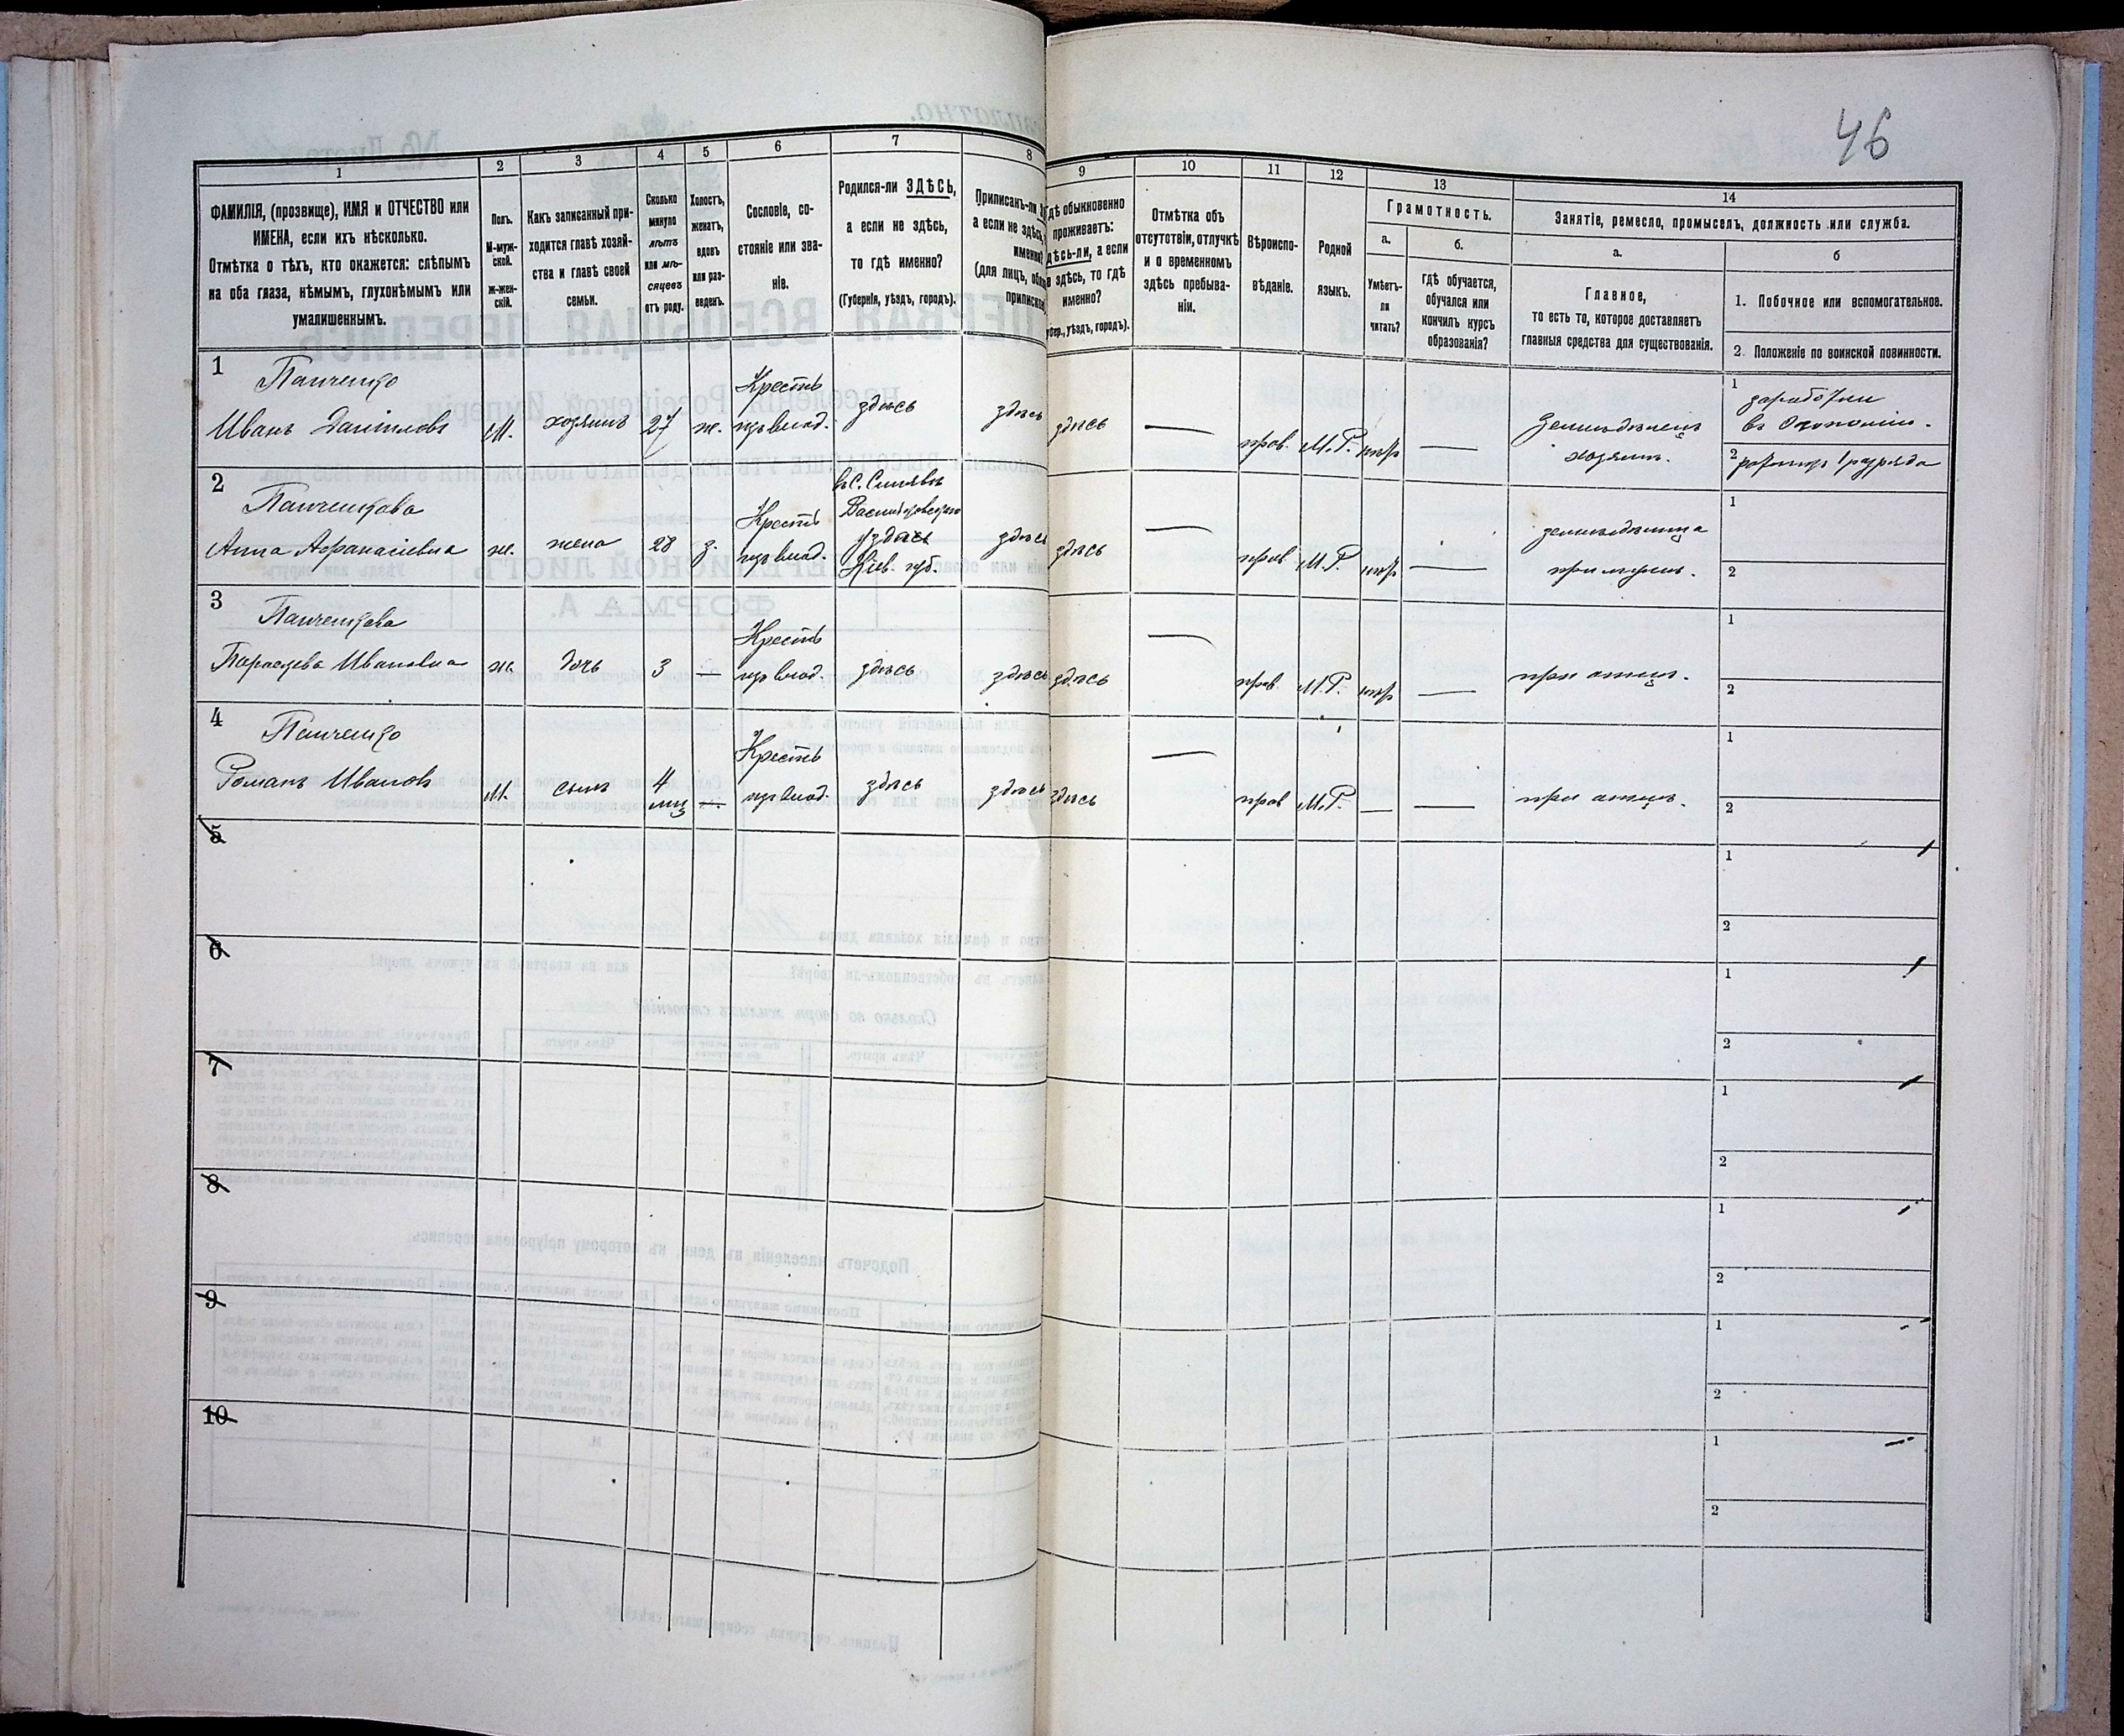 46
1
2
3
4
5
6
7
8
9
10
11
12
13
14
ФАМИЛІЯ, (прозвище), ИМЯ и ОТЧЕСТВО или
ИМЕНА, если ихъ нѣсколько.
Отмѣтка о тѣхъ, кто окажется: слѣпымъ
на оба глаза, нѣмымъ, глухонѣмымъ или
умалишеннымъ.
Полъ.
М-муж-
ской.
Ж-жен-
скій.
Какъ записанный при-
ходится главѣ хозяй-
ства и главѣ своей
семьи.
Сколько
минуло
лѣтъ
или мѣ-
сяцевъ
отъ роду.
Холостъ,
женатъ,
вдовъ
или раз-
веденъ.
Сословіе, со-
стояніе или зва-
ніе.
Родился-ли ЗДѢСЬ,
а если не здѣсь,
то гдѣ именно?
(Губернія, уѣздъ, городъ).
Приписанъ-ли
а если не здѣсь,
именно?
(для лицъ,
гдѣ обыкновенно
проживаетъ:
здѣсь-ли, а если
не здѣсь, то гдѣ
именно?
уѣздъ, городъ).
Отмѣтка объ
отсутствіи, отлучкѣ
и о временномъ
здѣсь пребыва-
ніи.
Вѣроиспо-
вѣданіе.
Родной
языкъ.
Грамотность.
а.
Умѣетъ-
ли
читать?
б.
гдѣ обучается,
обучался или
кончилъ курсъ
образованія?
Занятіе, ремесло, промыселъ, должность или служба.
а.
Главное,
то есть то, которое доставляетъ
главныя средства для существованія.
б
1. Побочное или вспомогательное.
2. Положеніе по воинской повинности.
1
Панченко
Иванъ Даніиловъ
М.
хозяинъ
27
ж.
Крестъ
изъ влад.
здѣсь
здѣсь
здѣсь
прав.
М.Р.
нѣтъ
Земледѣлецъ
хозяинъ.
1
заработки
въ Экономіи.
2 ратникъ 1 разряда
2
Панченкова
Анна Афанасіевна
ж.
жена
28
з.
Крестъ
изъ влад.
въ С. Синявѣ
Васильковскаго
уѣзда
Кіев. губ.
здѣсь
здѣсь
прав
М.Р.
нѣтъ
при мужѣ.
1
2
3
Панченкова
Параскева Ивановна
ж.
дочь
3
Крестъ
изъ влад.
здѣсь
здѣсь
здѣсь
прав
М.Р.
нѣтъ
при отцѣ.
1
2
4
Панченко
Романъ Ивановъ
М.
сынъ
4
мѣс
Крестъ
изъ влад.
здѣсь
здѣсь
здѣсь
прав
М.Р.
при отцѣ.
1
2
5
1
2
6
1
2
7
1
2
8
1
2
9
1
2
10
1
2